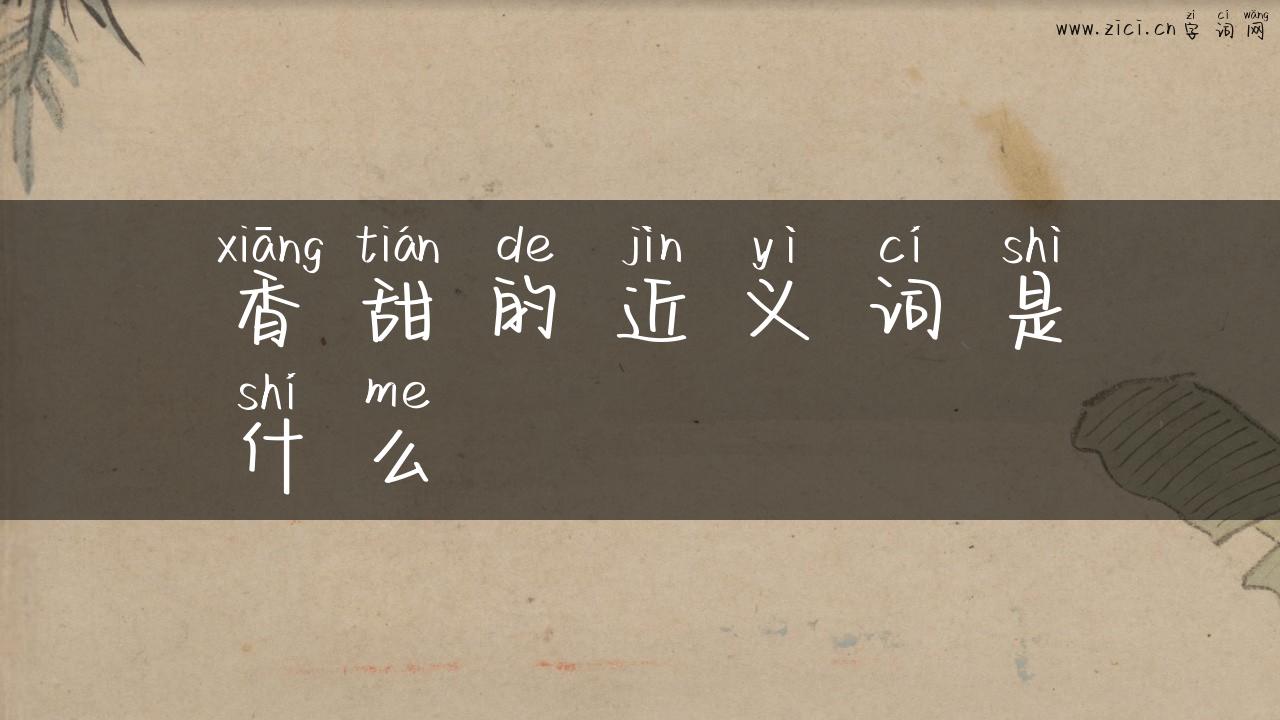 zì cí wǎng
www.zici.cn 字词网
xiāng tián de jìn yì cí shì
香甜的近义词是
shí me
什么